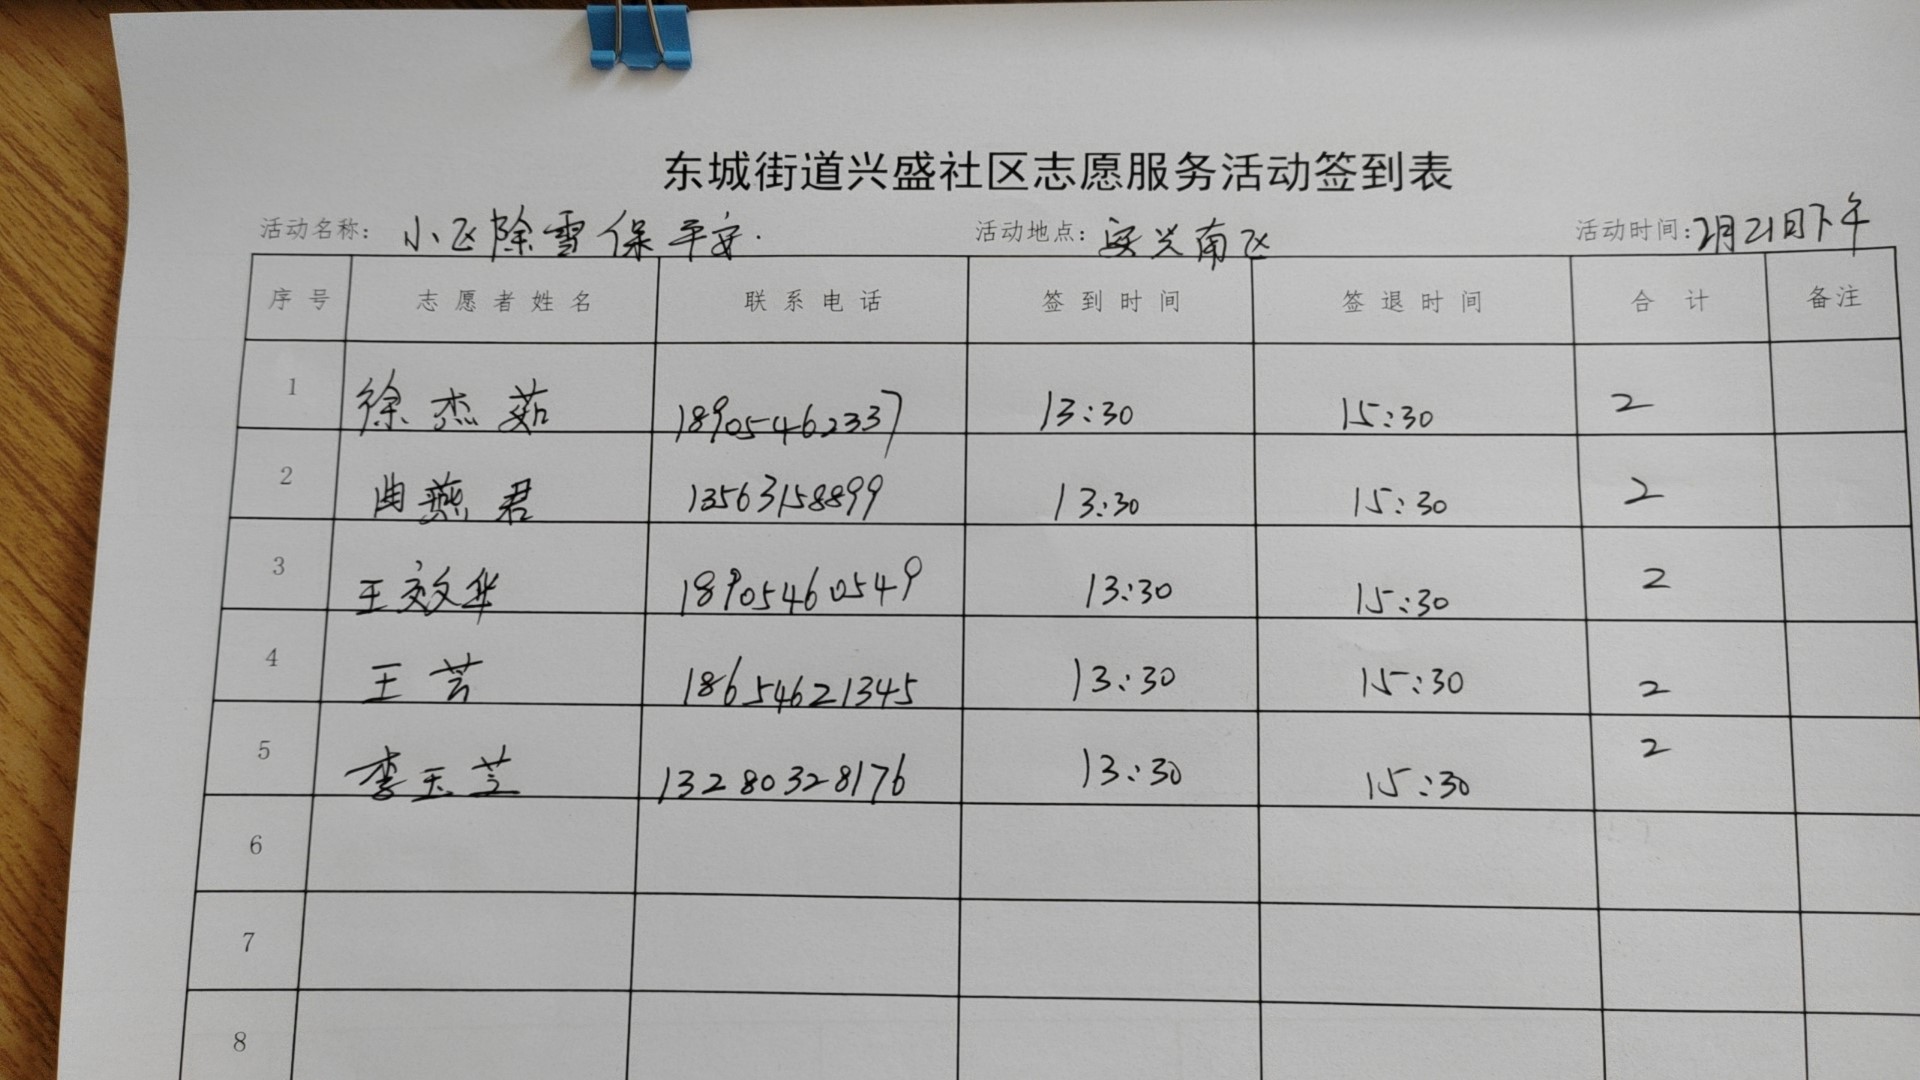 东城街道兴盛社区志愿服务活动签到表
活动名称: 小区除雪保平安. 活动地点: 安兴南区 活动时间: 2月21日下午
序号 志愿者姓名 联系电话 签到时间 签退时间 合计 备注
1 徐杰茹 18905462337 13:30 15:30 2
2 曲燕君 13563158899 13:30 15:30 2
3 王效华 18905460549 13:30 15:30 2
4 王芸 18654621345 13:30 15:30 2
5 李玉芝 13280328176 13:30 15:30 2
6
7
8